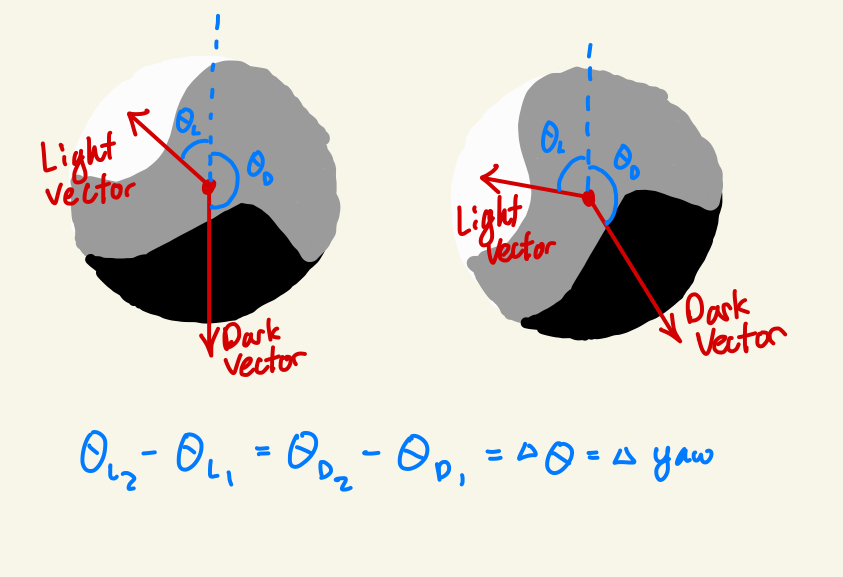 θL
θD
Light
vector
Dark
vector
θL
θD
Light
vector
Dark
vector
θL2 - θL1 = θD2 - θD1 = Δθ = Δ yaw